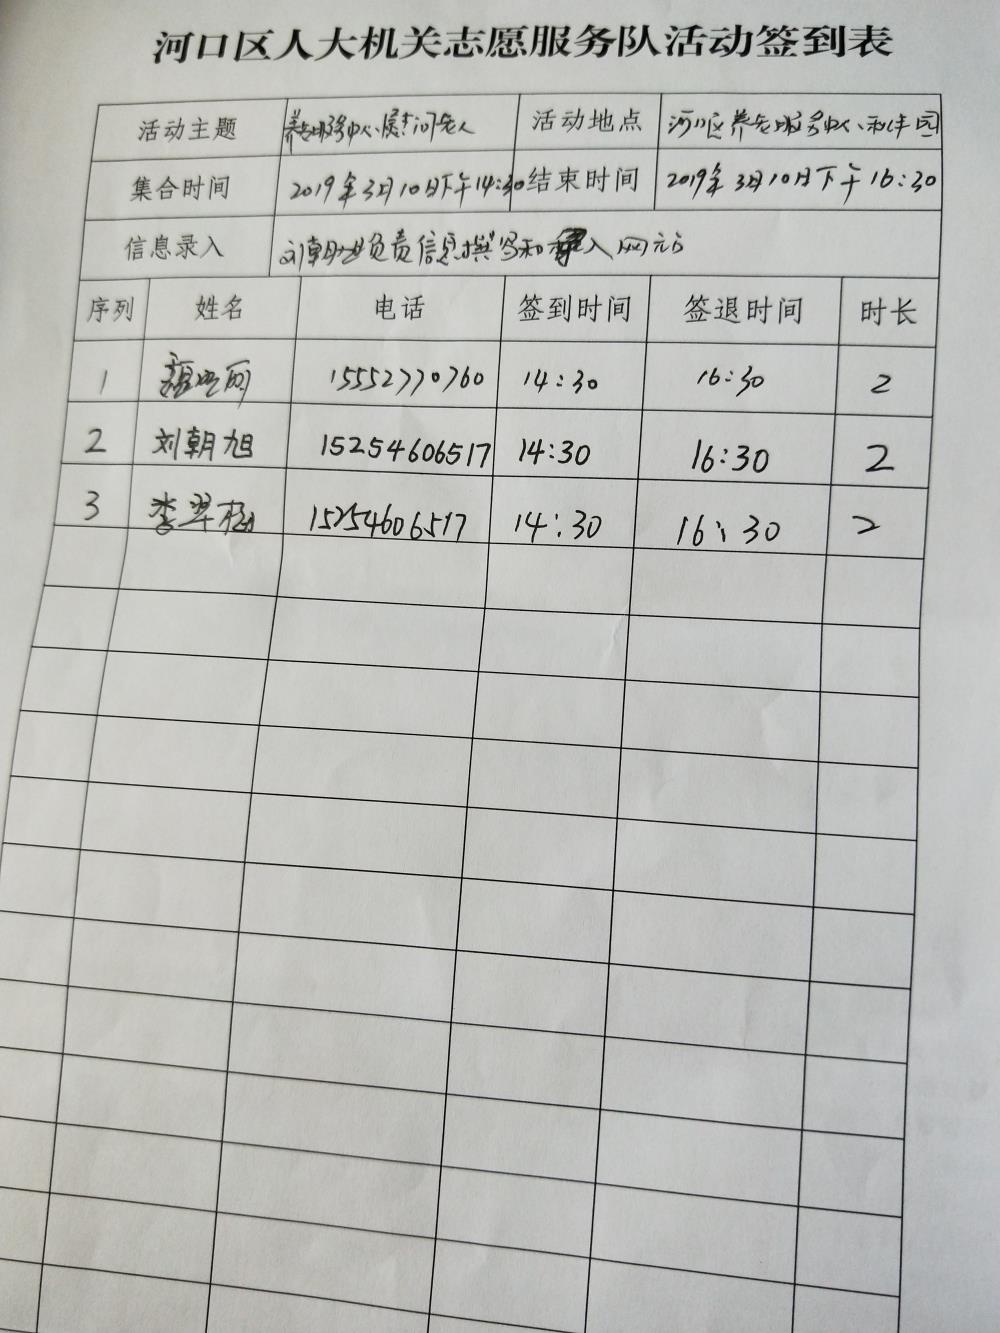 河口区人大机关志愿服务队活动签到表
活动主题 养老服务中心 问老人 活动地点 河口区养老服务中心、和丰园
集合时间 2019年3月10日下午14:30 结束时间 2019年3月10日下午16:30
信息录入 刘朝旭负责信息撰写和录入网站
序列 姓名 电话 签到时间 签退时间 时长
1 15552770760 14:30 16:30 2
2 刘朝旭 15254606517 14:30 16:30 2
3 李翠 15254606517 14:30 16:30 2